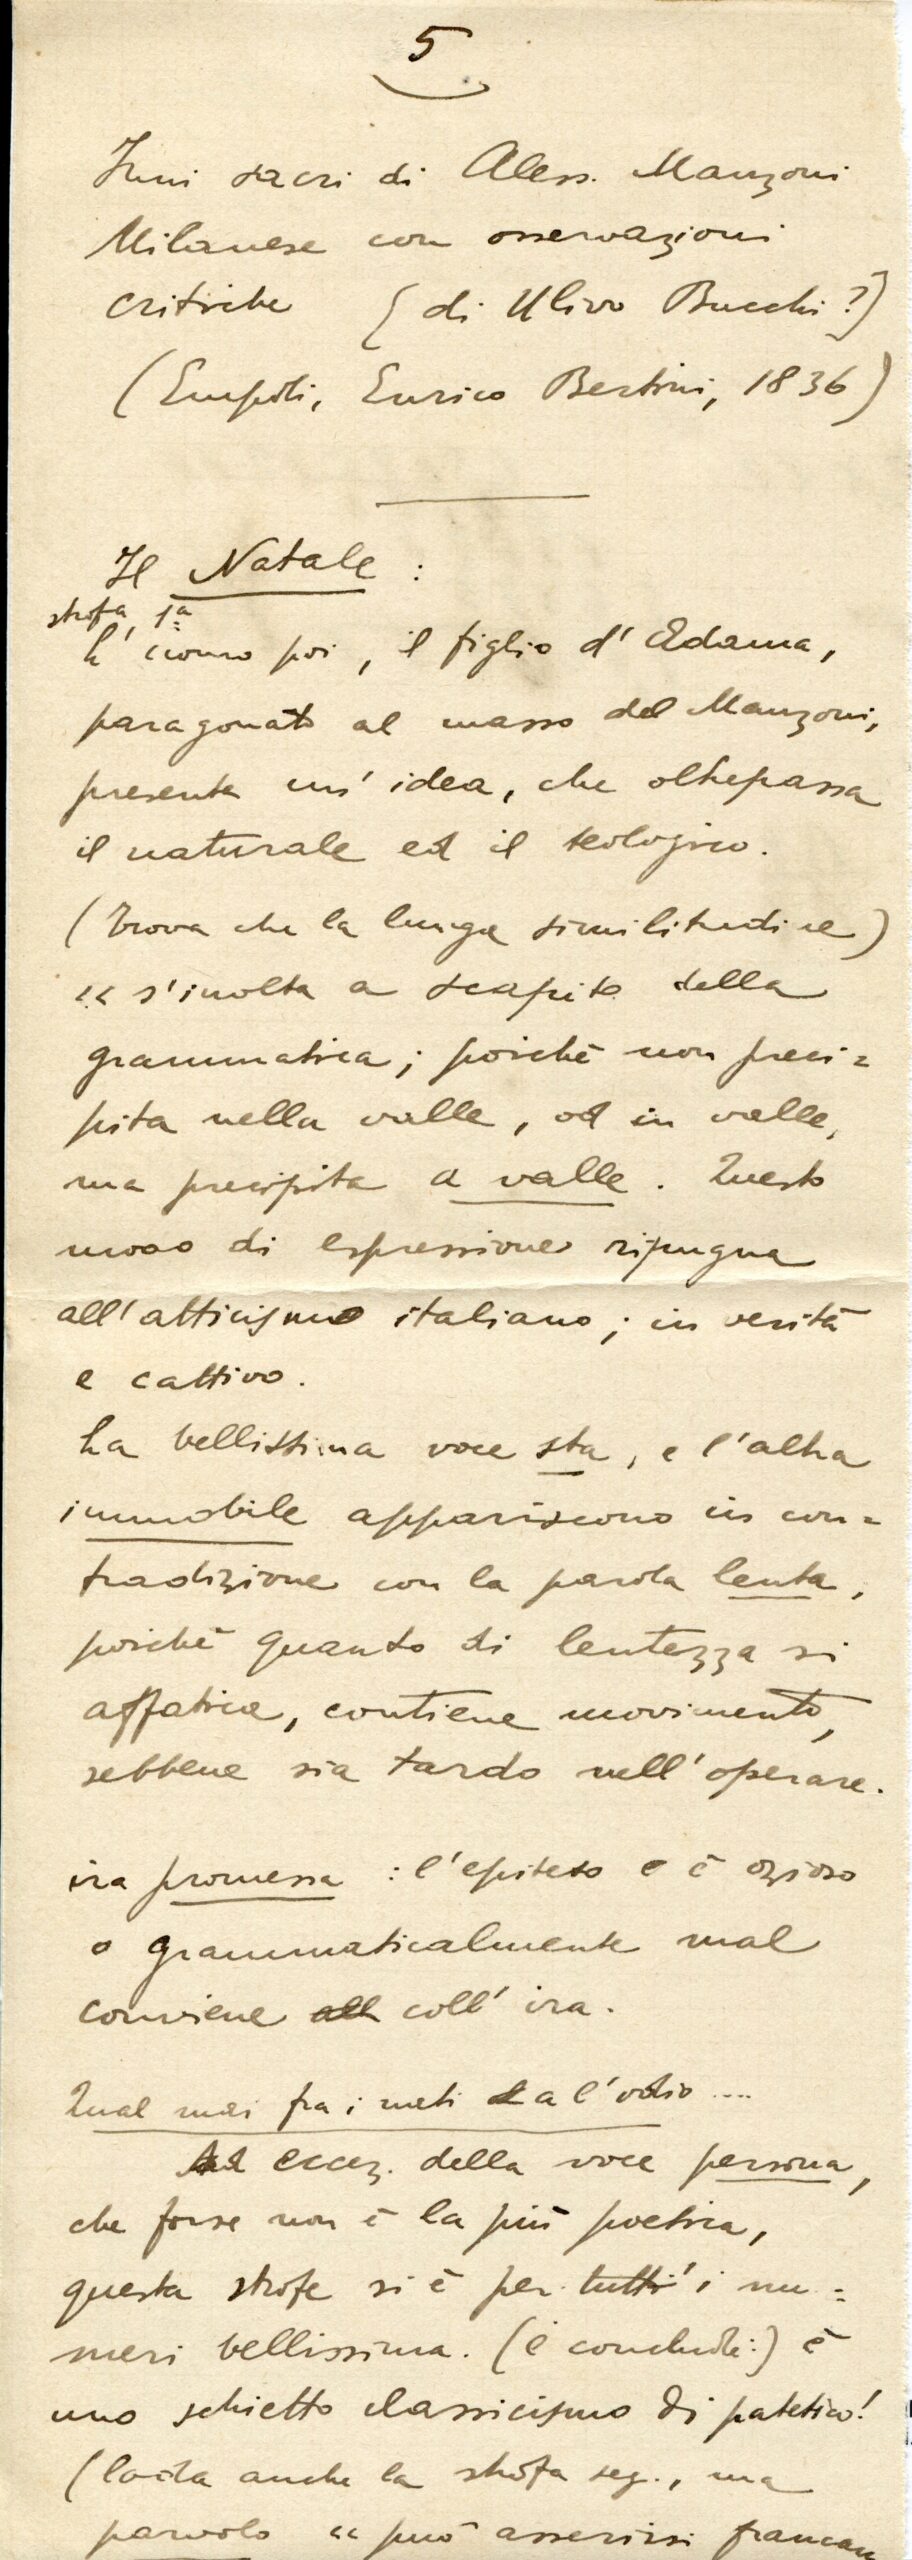 5
Inni sacri di Aless. Manzoni
Milanese con osservazioni
critiche [di Ulivo Bucchi?]
(Empoli, Enrico Bertini, 1836)
Il Natale :
strofa 1ª
L'uomo poi, il figlio d'Adama,
paragonato al masso del Manzoni,
presenta un'idea, che oltrepassa
il naturale ed il teologico.
(Trova che la lunga similitudine)
« s'inolta a scapito della
grammatica; poichè non preci=
pita nella valle, od in valle,
ma precipita a valle. Questo
modo di espressione ripugna
all'atticismo italiano; in verità
e cattivo.
La bellissima voce sta, e l'altra
immobile appariscono in con=
tradizione con la parola lenta,
poichè quanto di lentezza si
affatica, contiene movimento,
sebbene sia tardo nell'operare.
ira promessa : l'epiteto o è ozioso
o grammaticalmente mal
conviene coll'ira.
Qual mai fra i nati all'odio ....
Ad eccez. della voce persona,
che forse non è la più poetica,
questa strofe si è per tutti i nu=
meri bellissima. (e conclude:) è
uno schietto classicismo di patetico!
(loda anche la strofa seg., ma
parvolo « può asserirsi francam